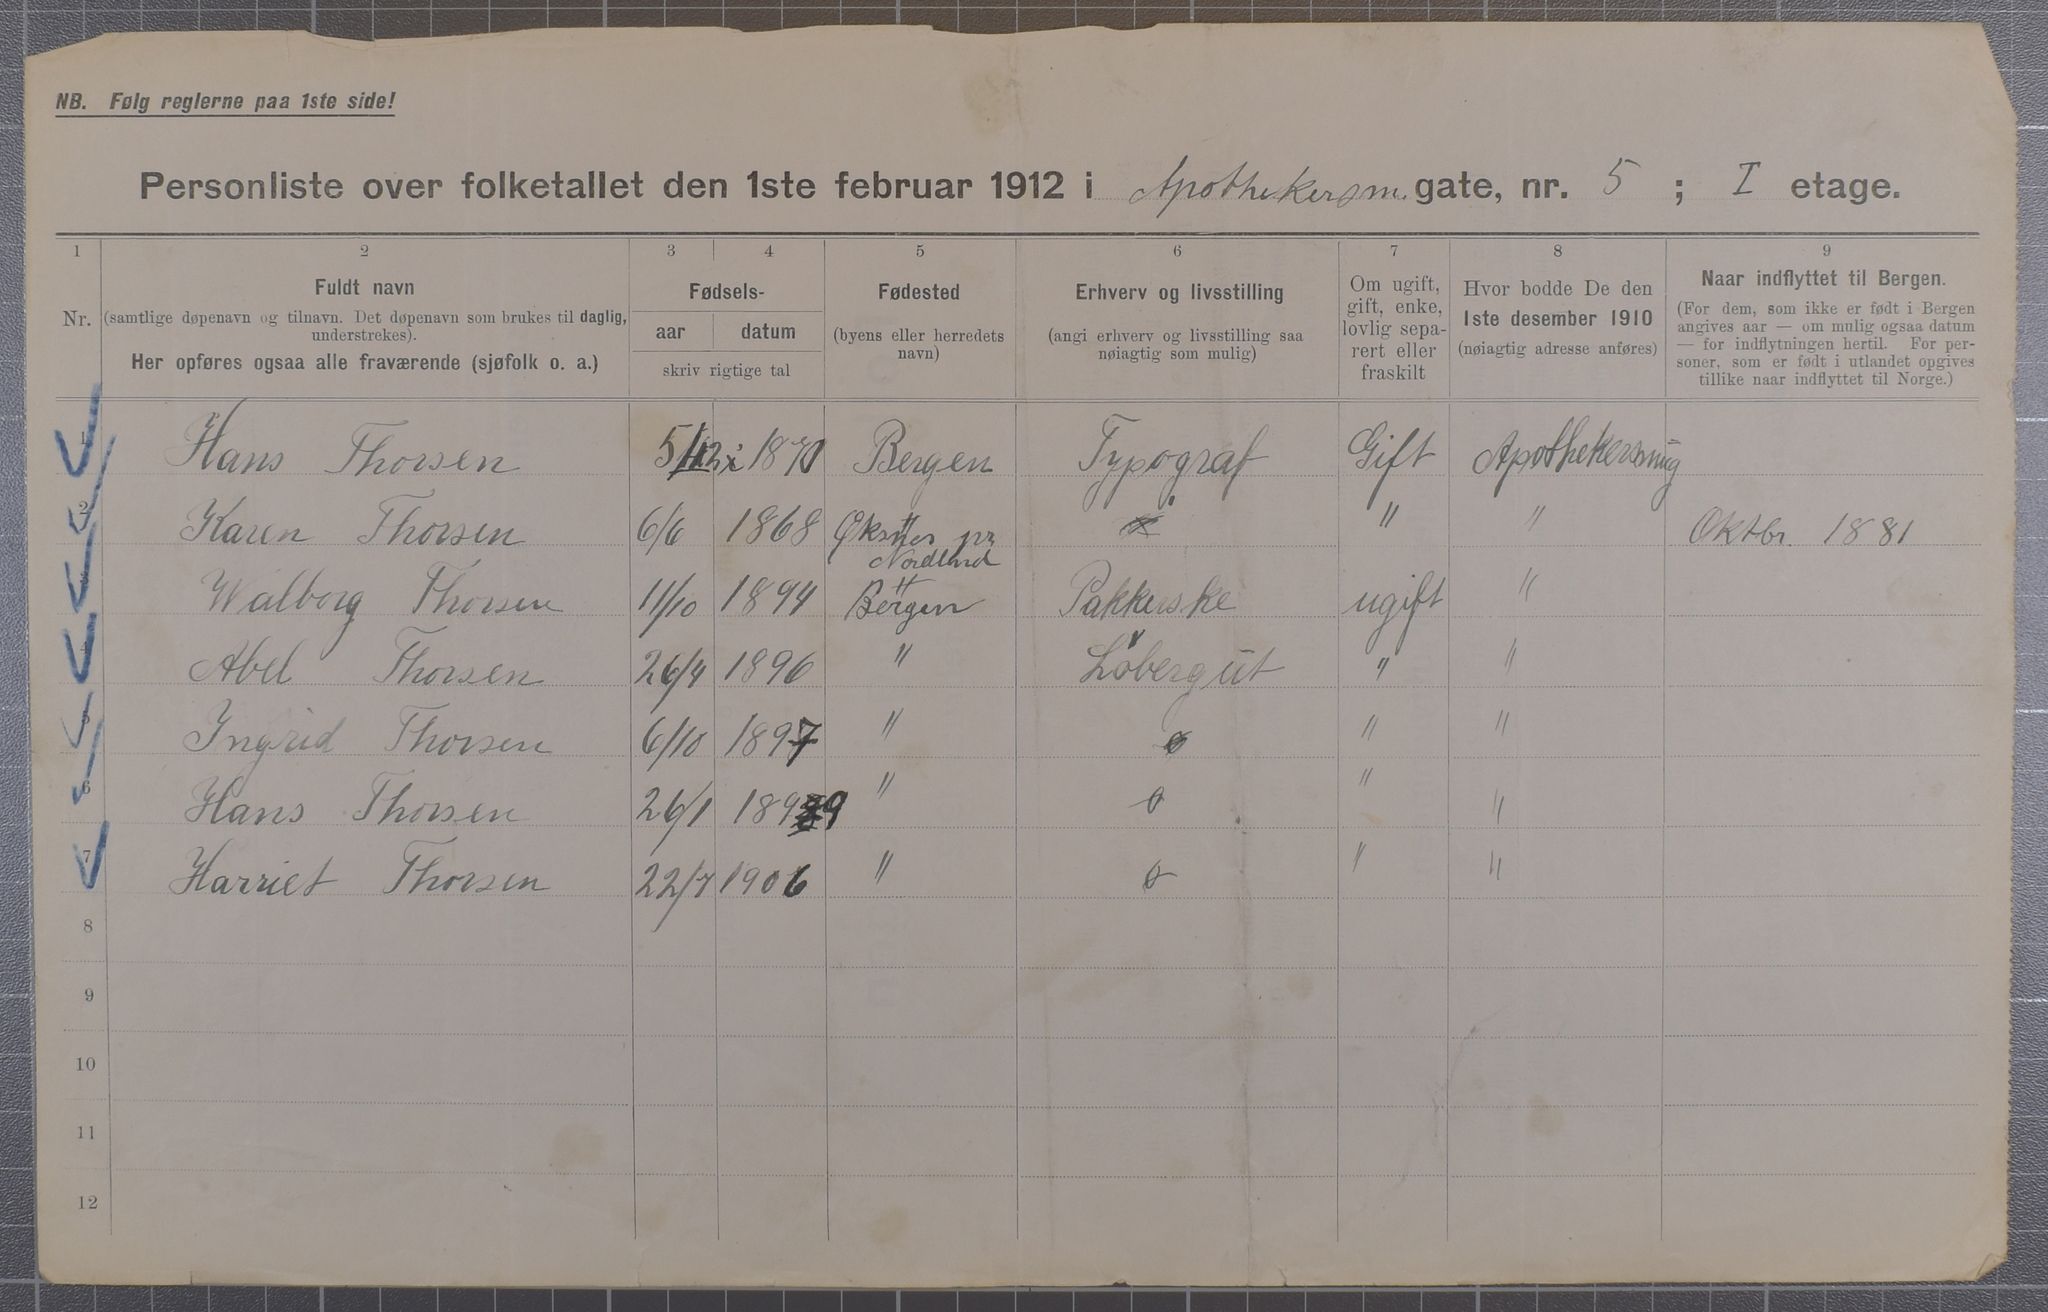 NB. Følg reglerne paa 1ste side!
Personliste over folketallet den 1ste februar 1912 i Apothekersm. gate, nr. 5 ; I etage.
1 2 3 4 5 6 7 8 9
Nr.
Fuldt navn
(samtlige døpenavn og tilnavn. Det døpenavn som brukes til daglig, understrekes).
Her opføres ogsaa alle fraværende (sjøfolk o. a.)
Fødsels-
aar datum
skriv rigtige tal
Fødested
(byens eller herredets
navn)
Erhverv og livsstilling
(angi erhverv og livsstilling saa
nøiagtig som mulig)
Om ugift,
gift, enke,
lovlig sepa-
rert eller
fraskilt
Hvor bodde De den
1ste desember 1910
(nøiagtig adresse anføres)
Naar indflyttet til Bergen.
(For dem, som ikke er født i Bergen
angives aar — om mulig ogsaa datum
— for indflytningen hertil. For per-
soner, som er født i utlandet opgives
tillike naar indflyttet til Norge.)
1 Hans Thorsen 5/12 1870 Bergen Typograf Gift Apothekersmug
2 Karen Thorsen 6/6 1868 " " Oktbr. 1881
Nordland
3 Walborg Thorsen 11/10 1894 Bergen Pakkerske ugift "
4 Abel Thorsen 26/4 1896 " Løbergut " "
5 Ingrid Thorsen 6/10 1897 " o " "
6 Hans Thorsen 26/1 1899 " o " "
7 Harriet Thorsen 22/7 1906 " o " "
8
9
10
11
12